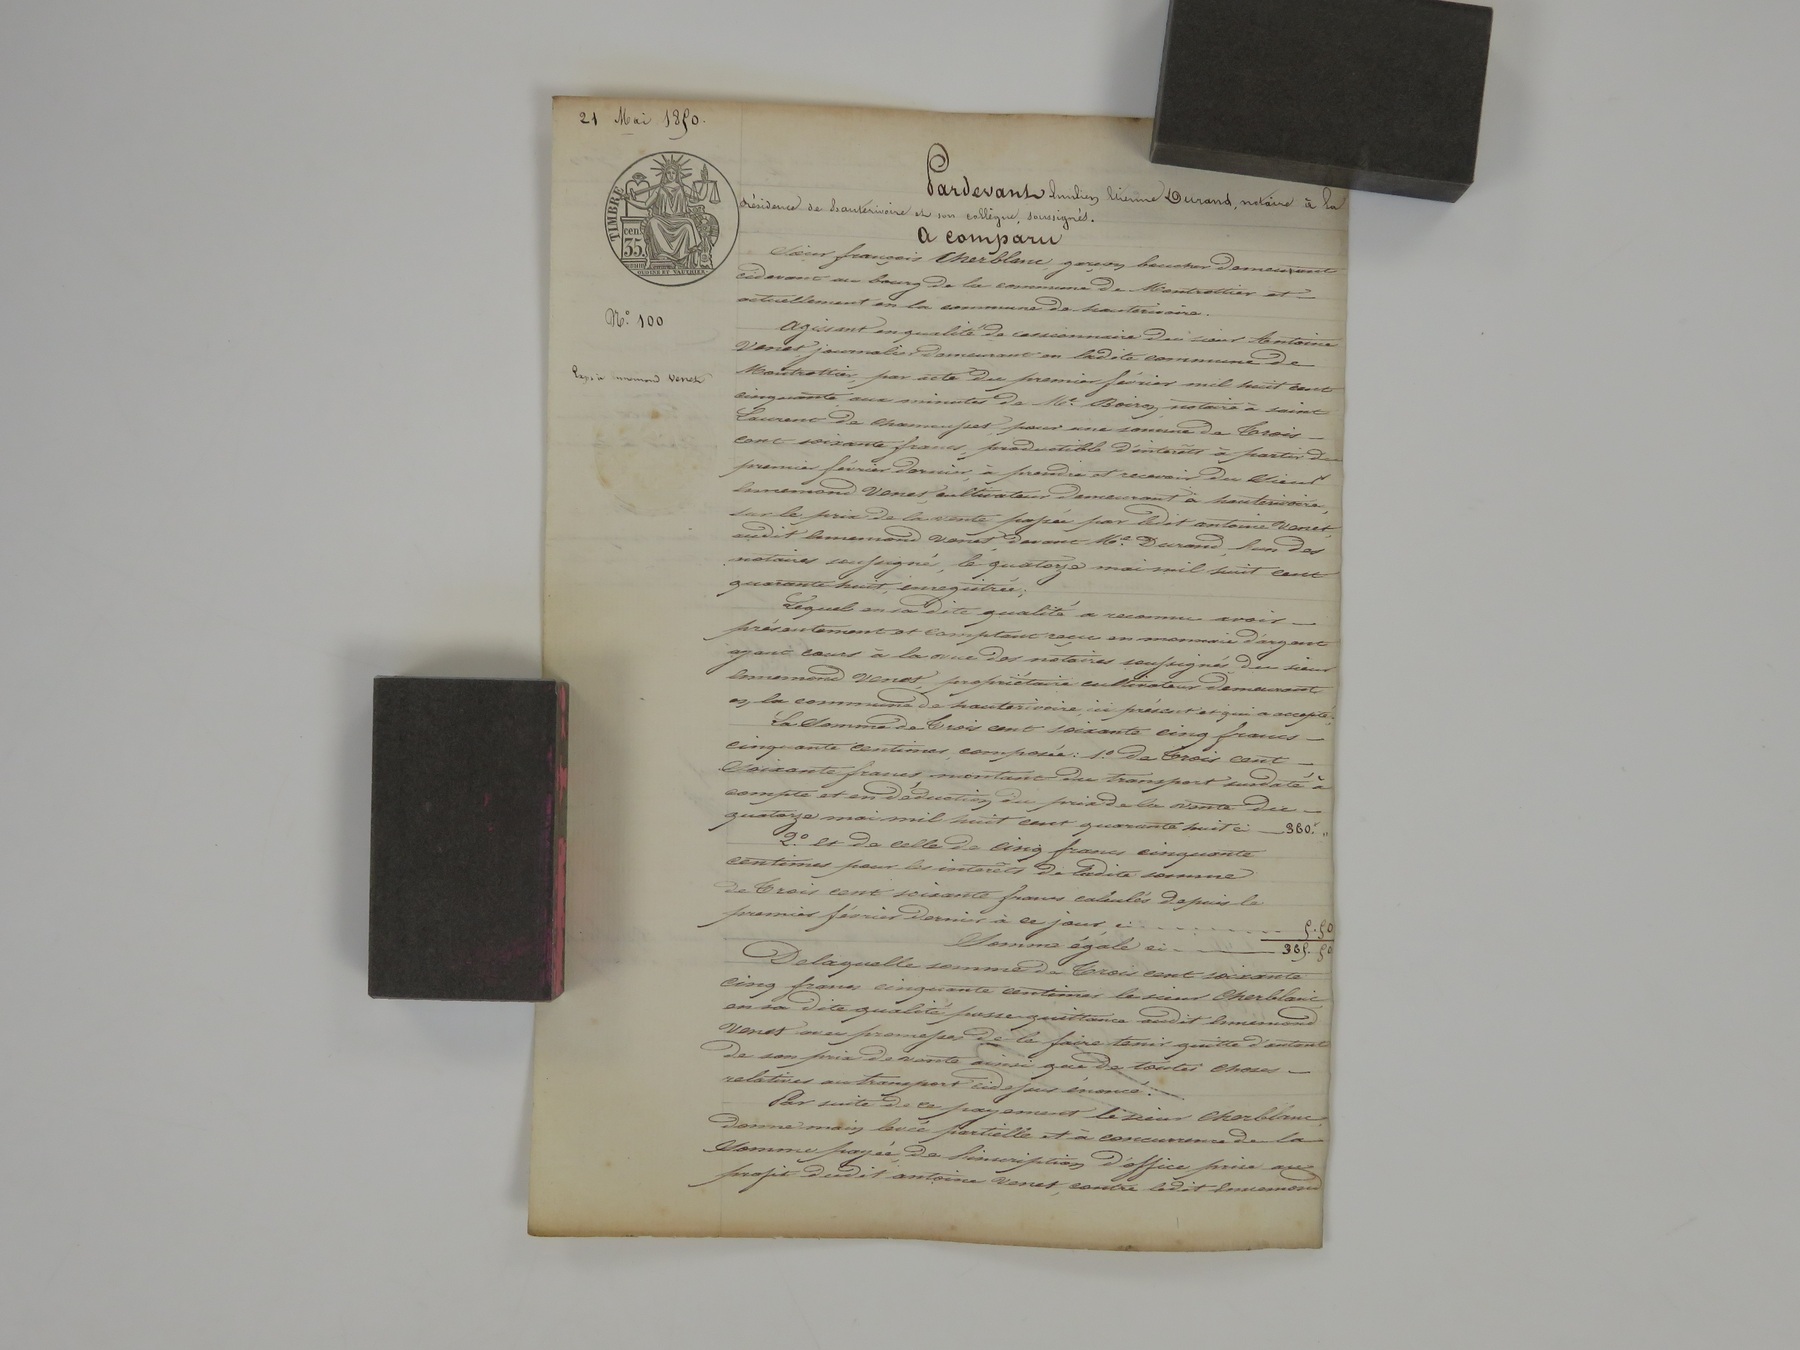 21 Mai 1850.
TIMBRE
cent
35
N.° 100
Venet
Pardevant Etienne Durand, notaire à la
résidence de hauterivoire et son collègue, soussignés.
A comparu
Sieur françois Cherblanc, garçon boucher demeurant
cidevant au bourg de la commune de Montrottier et
actuellement en la commune de hauterivoire.
Agissant en qualité de cessionnaire du sieur Antoine
Venet, journalier demeurant en ladite commune de
Montrottier, par acte du premier février mil huit cent
cinquante aux minutes de Me. notaire à saint
Laurent de chamousset, pour une somme de Trois
cent soixante francs, productible d'intérêts à partir du
premier février dernier, à prendre et recevoir du Sieur
Ennemond Venet, cultivateur demeurant à hauterivoire,
sur le prix de la vente passée par ledit antoine Venet,
audit Ennemond Venet devant Me. Durand, l'un des
notaires soussigné, le quatorze mai mil huit cent
quarante huit, enregistrée;
Lequel en sa dite qualité a reconnu avoir
présentement et comptant reçu en monnaie d'argent
ayant cours à la vue des notaires soussignés, du sieur
Ennemond Venet, propriétaire cultivateur demeurant
en la commune de hauterivoire, ici présent et qui a accepté,
La Somme de Trois cent soixante cinq francs
cinquante centimes composée: 1.° de Trois cent
Soixante francs montant du transport susdaté à
compte et en déduction du prix de la vente du
quatorze mai mil huit cent quarante huit ci 360.f "
2.° et de celle de cinq francs cinquante
centimes pour les intérêts de ladite somme
de Trois cent soixante francs calculés depuis le
premier février dernier à ce jour, ci 5.50
Somme égale ci 365. 50
Delaquelle somme de Trois cent soixante
cinq francs cinquante centimes le sieur Cherblanc
en sa dite qualité passe quittance audit Ennemond
Venet avec promesses de le faire tenir quitte d'autant
de son prix de vente ainsi que de toutes choses
relatives au transport cidessus énoncé.
Par suite de ce payement le sieur Cherblanc,
donne main levée partielle et à concurrence de la
Somme payée, de l'inscription d'office prise au
profit dudit antoine Venet, contre ledit Ennemond